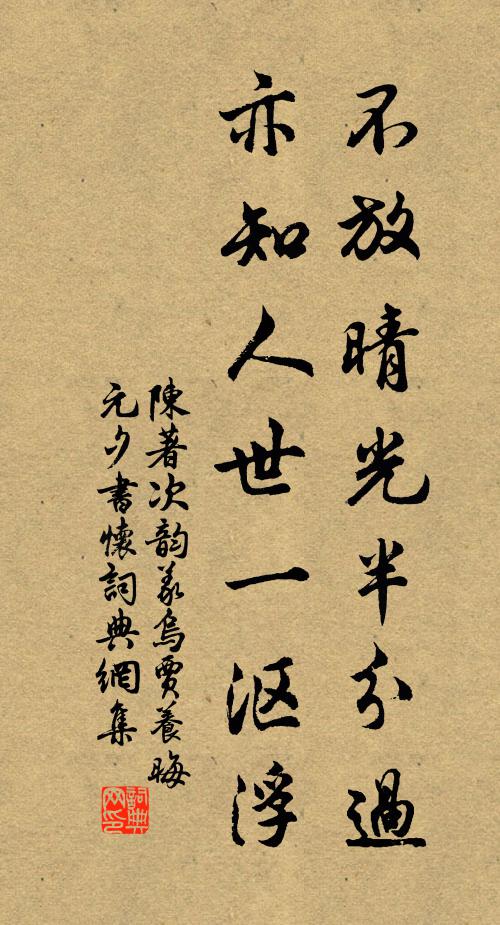 不放晴光半分過
亦知人世一漚浮
陳著次韵義烏賈養晦
元夕書懷詞典網集
詞典网印